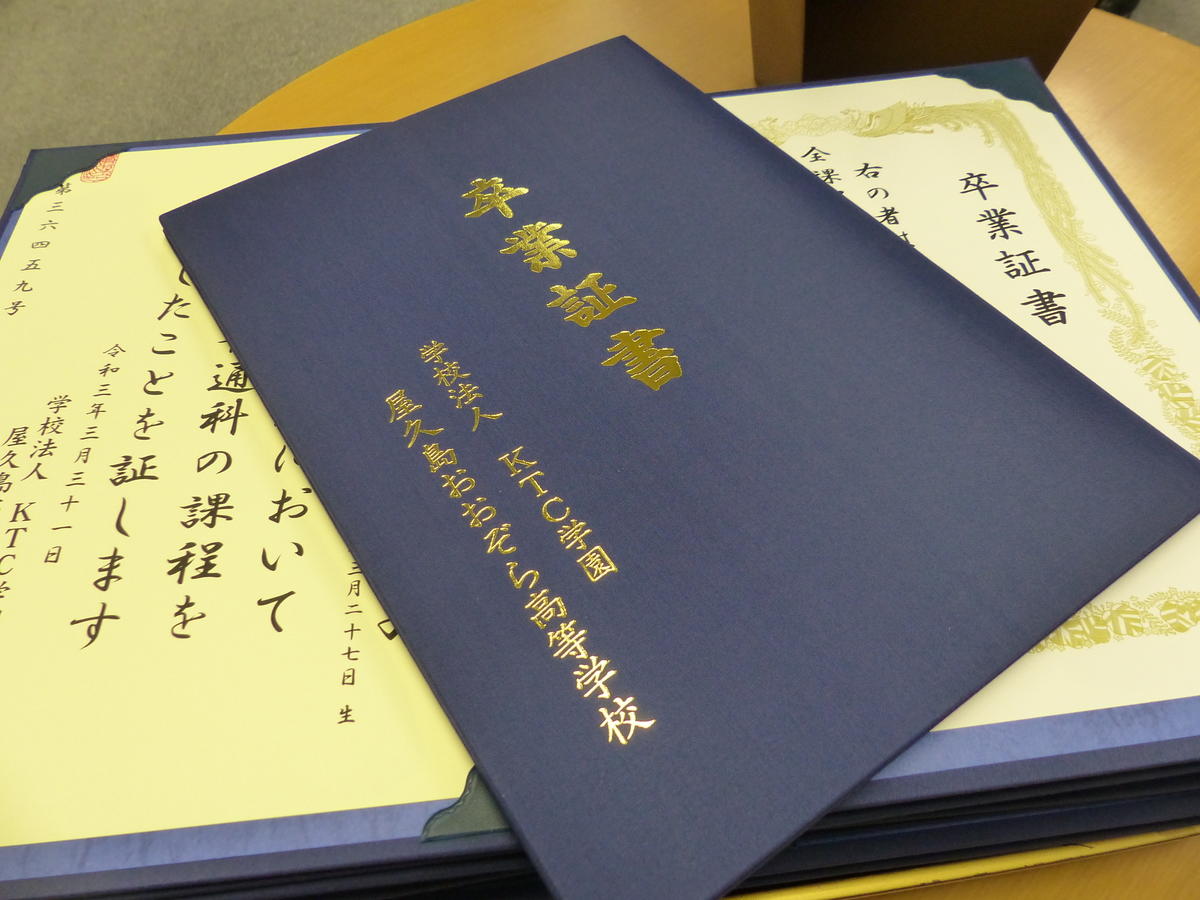 卒業証書
学校法人 KTC学園
屋久島おおぞら高等学校
卒業証書
右の者
全課
三月二十七日生
において
通科の課程を
したことを証します
令和三年三月三十一日
学校法人 KTC学
屋久島
第三六四五九号